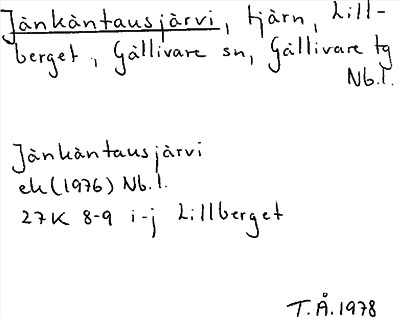 Jänkäntausjärvi, tjärn, Lill-
berget, Gällivare sn, Gällivare tg
Nb.l.
Jänkäntausjärvi
ek (1976) Nb.l.
27K 8-9 i-j Lillberget
T.Å. 1978